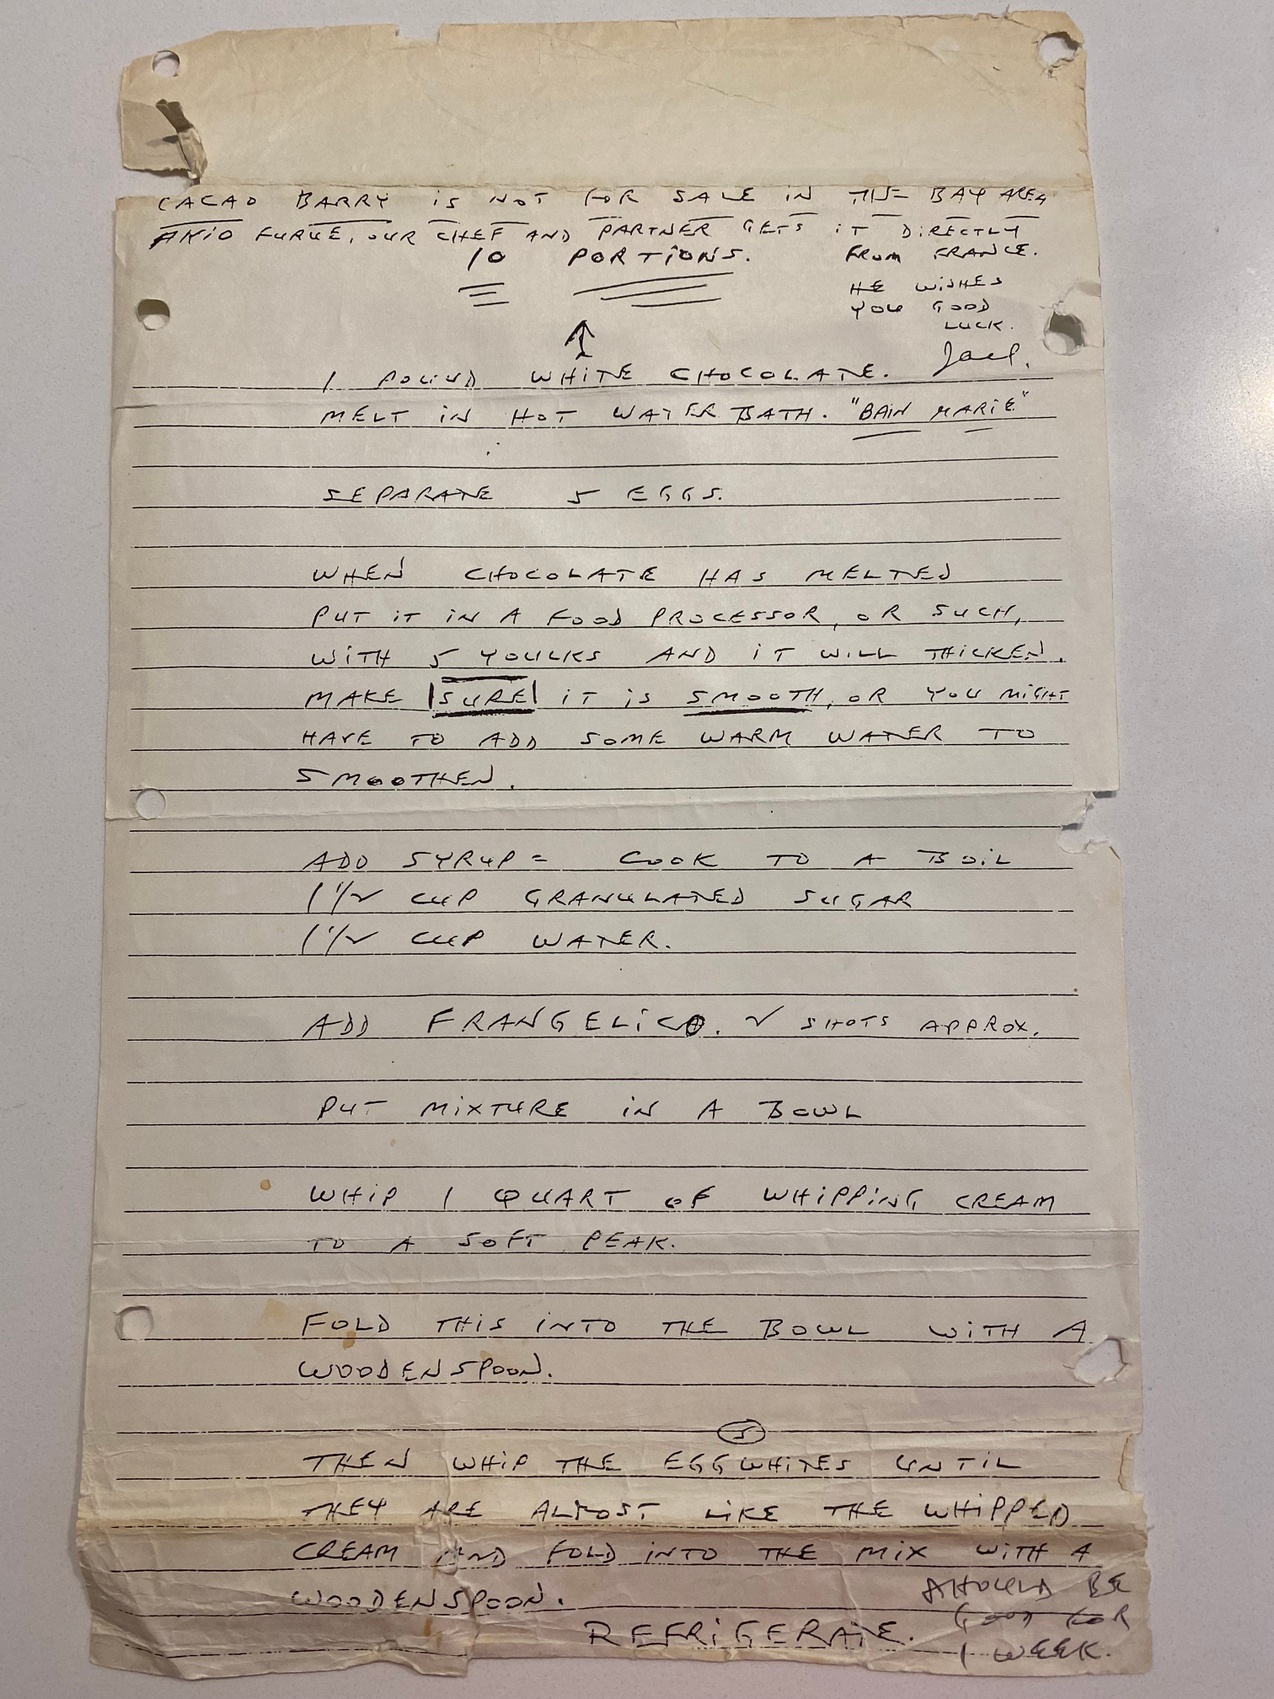 CACAO BARRY iS NOT FOR SALE IN THE BAY AREA
AKIO FURUE, OUR CHEF AND PARTNER GETS iT DiRECTLY
FROM FRANCE.
10 PORTiONS.
HE WiSHES
YOU GOOD
LUCK.
Joel.
1 POUND WHITE CHOCOLATE.
MELT IN HOT WATER BATH. "BAIN MARiE"
SEPARATE 5 EGGS.
WHEN CHOCOLATE HAS MELTED
PUT iT IN A FOOD PROCESSOR, OR SUCH,
WiTH 5 YOULKS AND iT WiLL THiCKEN.
MAKE |SURE| iT iS SMOOTH, OR YOU MiGHT
HAVE TO ADD SOME WARM WATER TO
SMOOTHEN.
ADD SYRUP = COOK TO A BOiL
1 1/2 CUP GRANULATED SUGAR
1 1/2 CUP WATER.
ADD FRANGELiCO. 2 SHOTS APPROX.
PUT MiXTURE iN A BOWL
WHiP 1 QUART OF WHiPPiNG CREAM
TO A SOFT PEAK.
FOLD THiS iNTO THE BOWL WiTH A
WOODENSPOON.
5
THEN WHiP THE EGGWHiTES UNTiL
THEY ARE ALMOST LiKE THE WHiPPED
CREAM AND FOLD iNTO THE MiX WiTH A
WOODENSPOON.
REFRiGERATE.
SHOULD BE
GOOD FOR
1 WEEK.